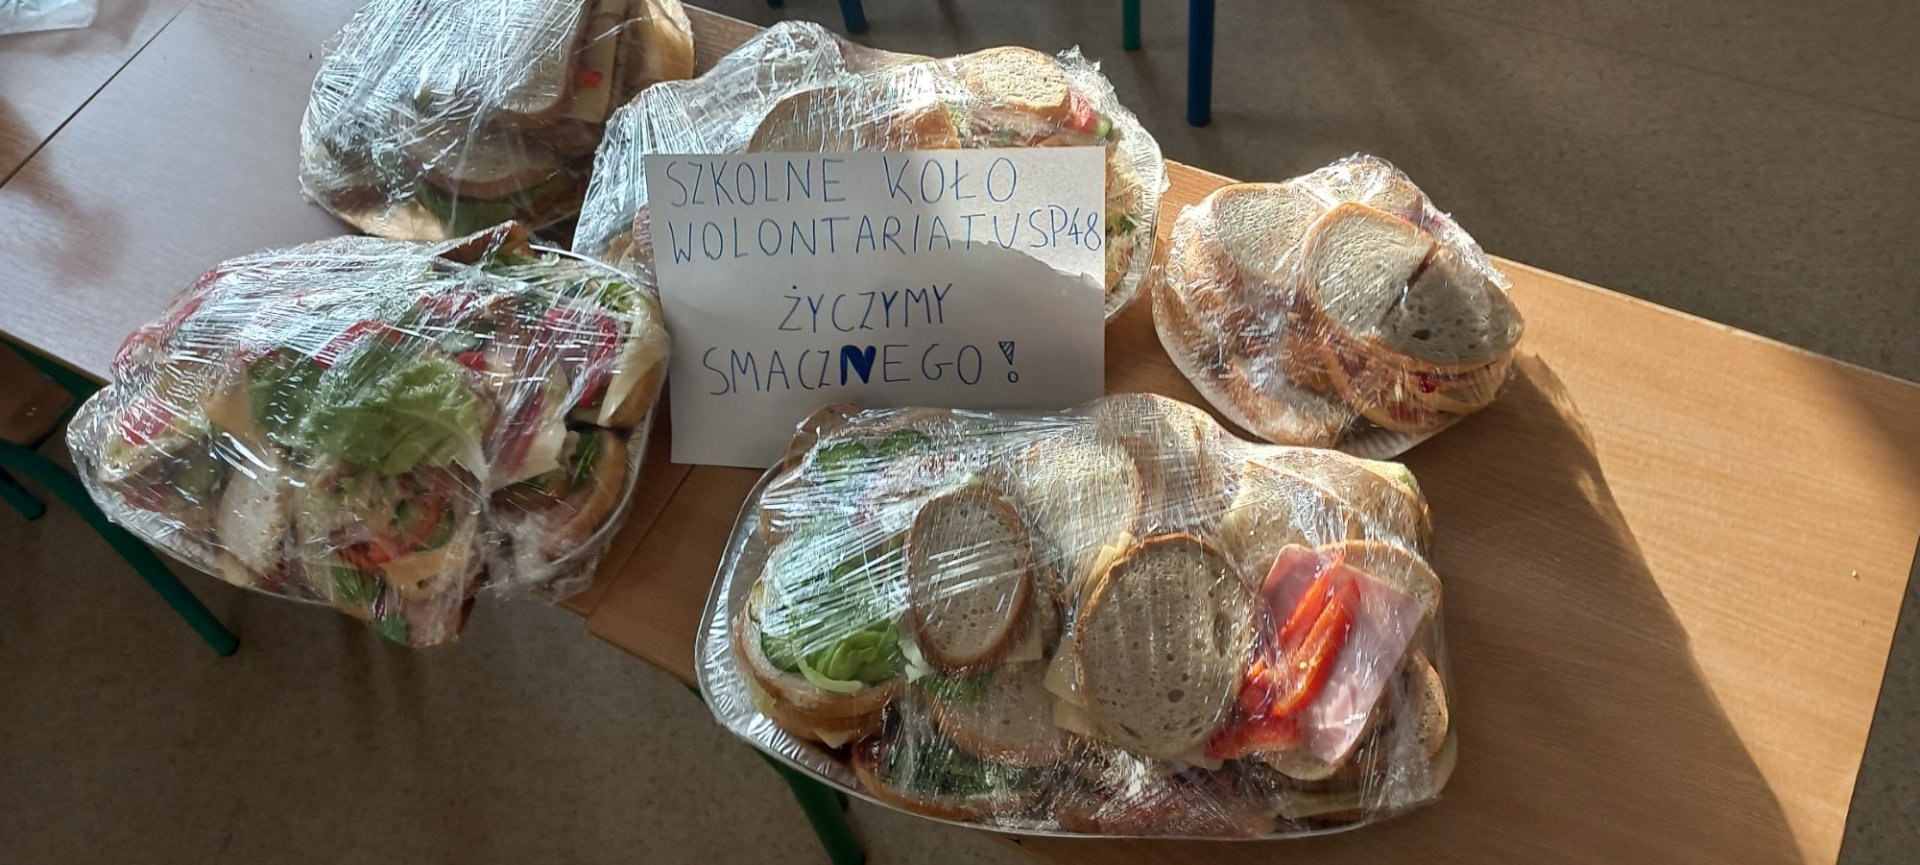 SZKOLNE KOŁO
WOLONTARIATU SP48
ŻYCZYMY
SMACZNEGO!